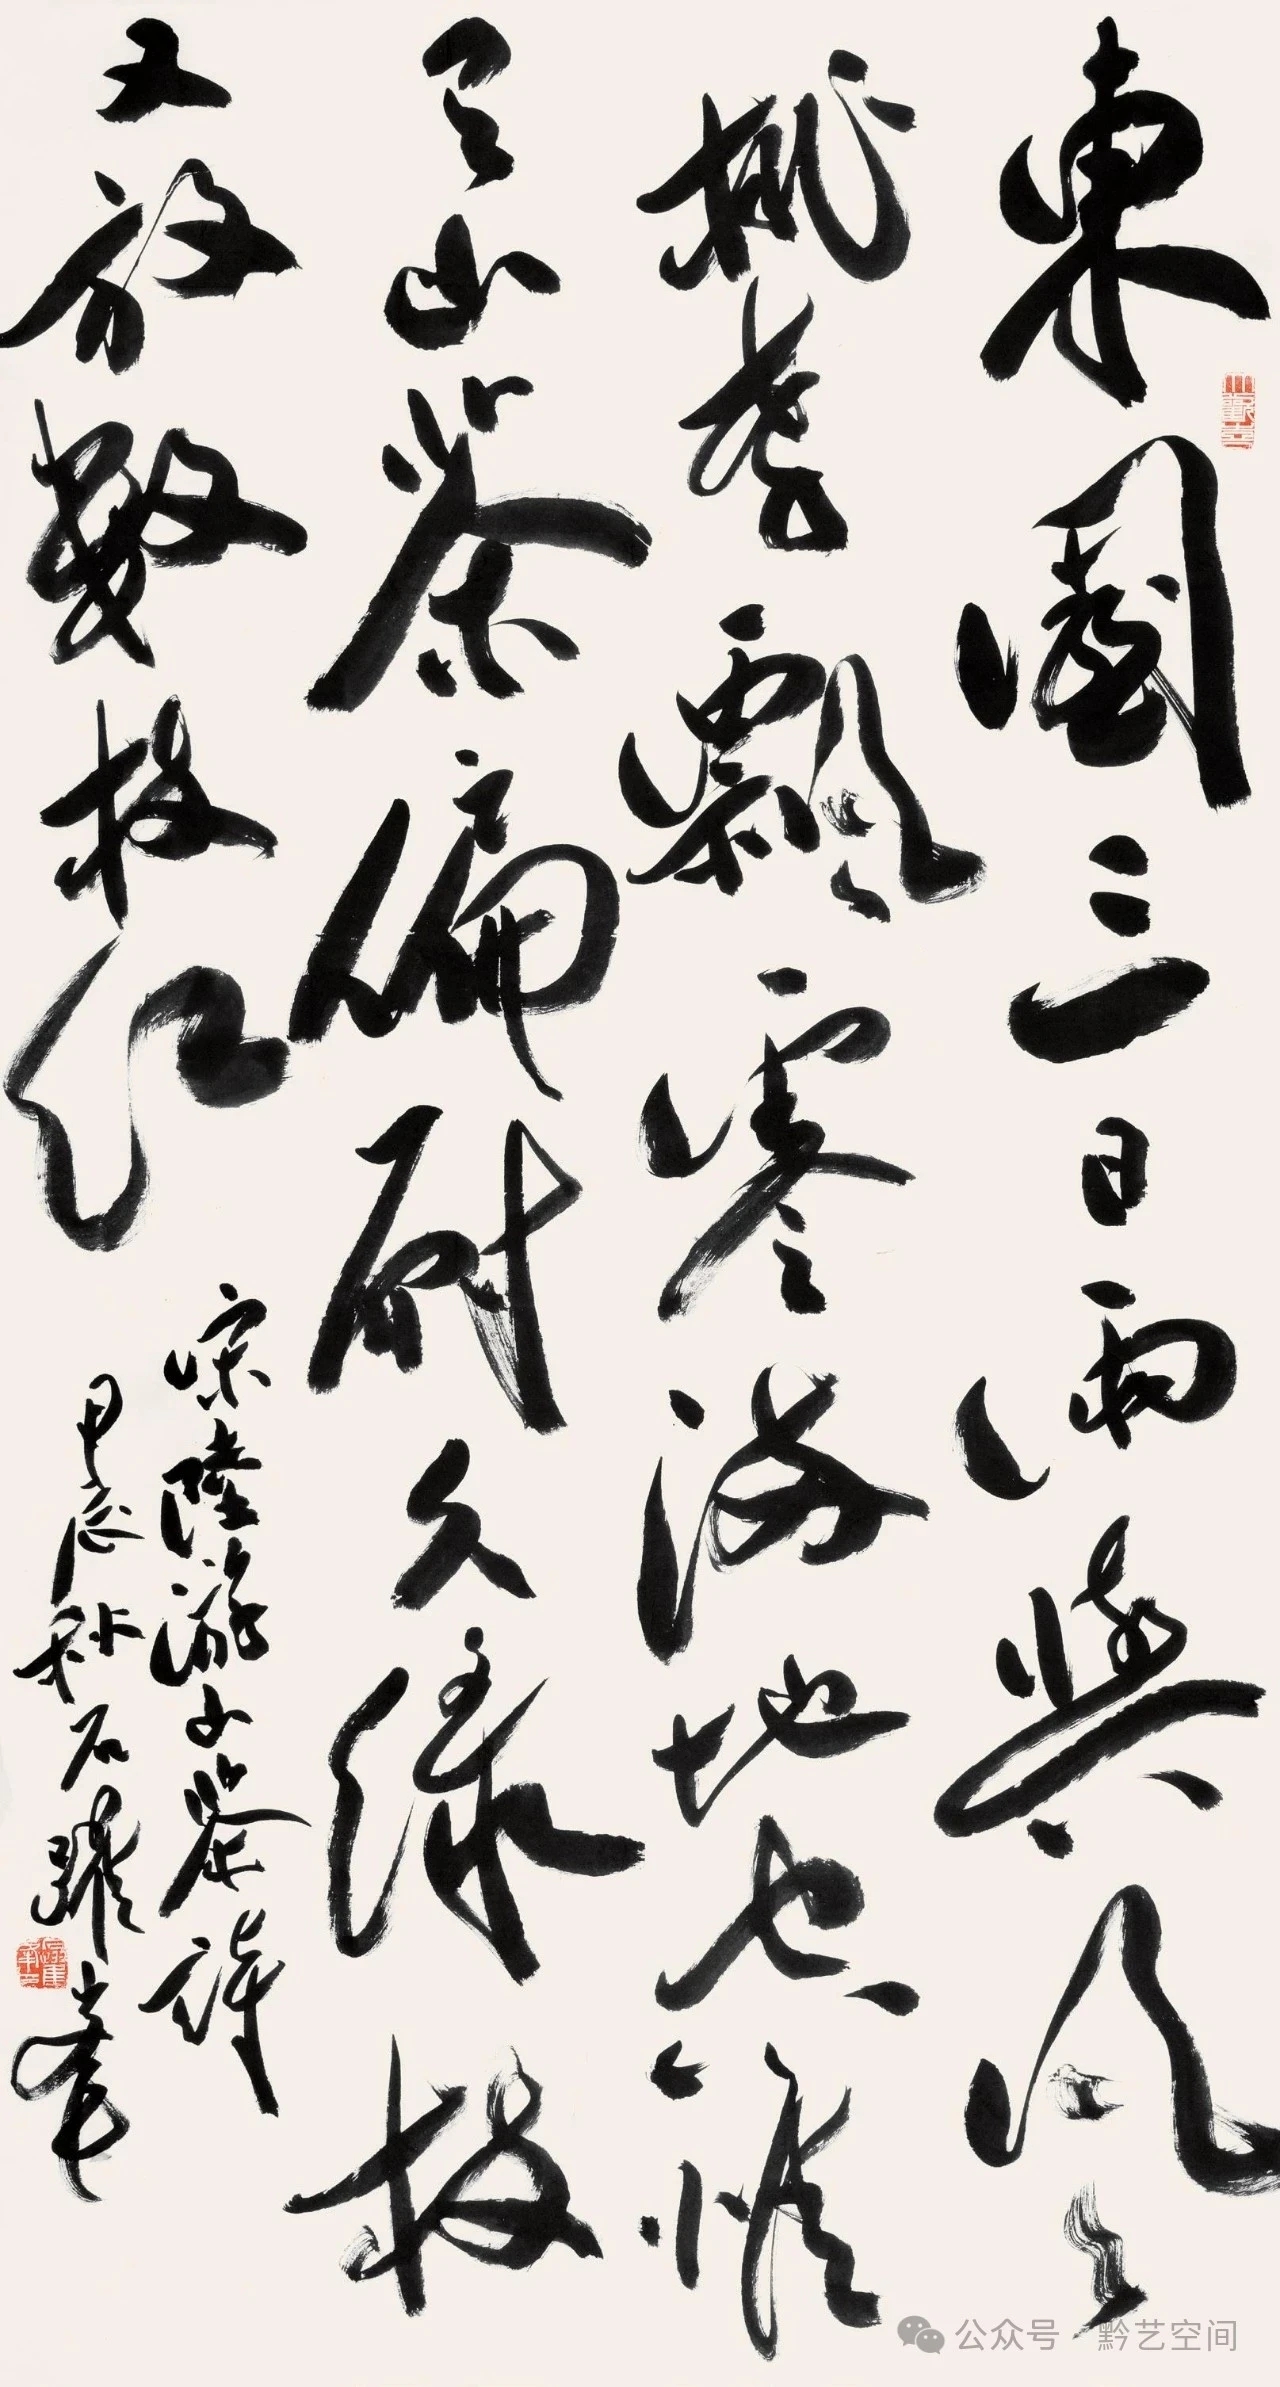 東園三日雨與風
桃李飄零地空惟
有山茶偏耐久緑枝
又放數枝紅
宋陸游山茶詩
甲辰秋石躍
公众号·黔艺空间